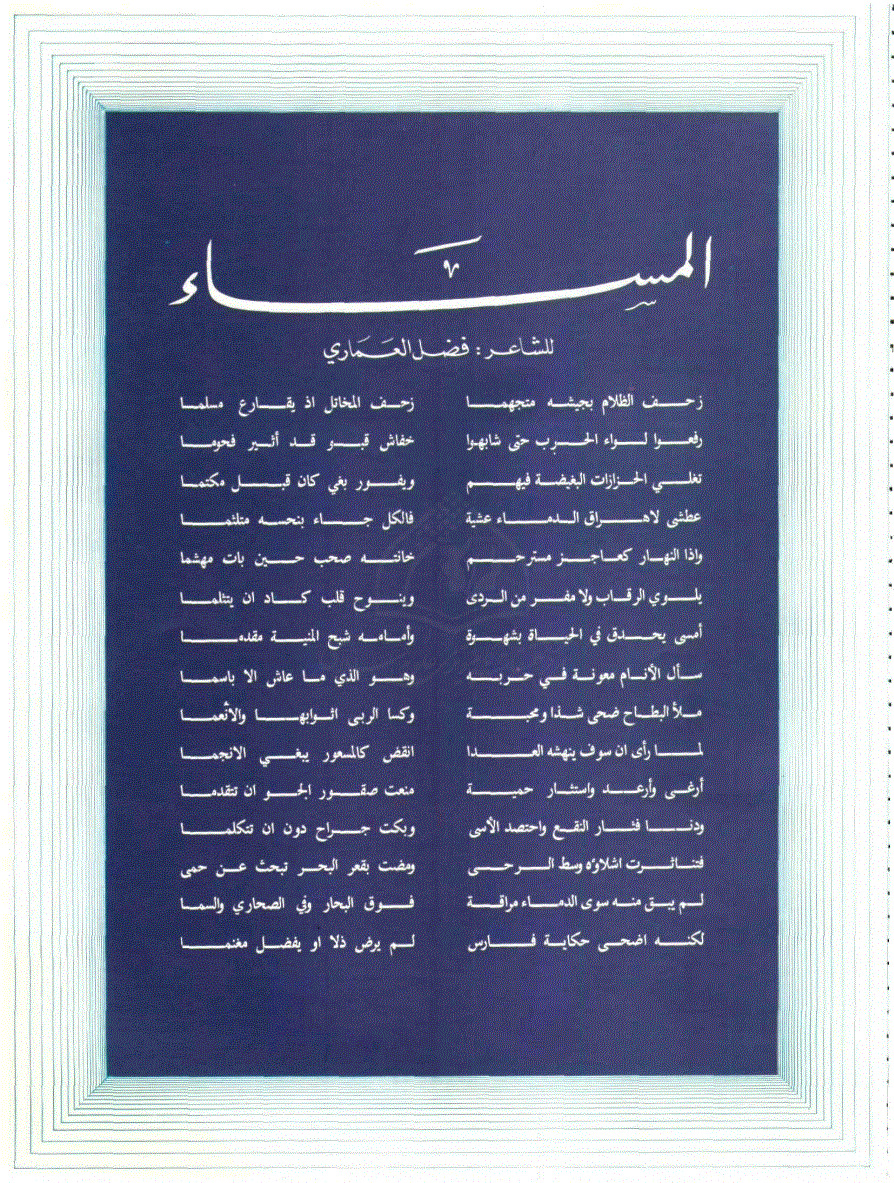 المساء
للشاعر : فضل العماري
زحف الظلام بجيشه متجهما زحف المخاتل اذ يقارع مسلما
رفعوا لواء الحرب حتى شابهوا خفاش قبو قد أثير فحوما
تغلي الحزازات البغيضة فيهم ويفور بغي كان قبل مكتما
عطشى لاهراق الدماء عشية فالكل جاء بنحسه متلثما
واذا النهار كعاجز مسترحم خانته صحب حين بات مهشما
يلوي الرقاب ولا مفر من الردى وينوح قلب كاد ان يتثلما
أمسى يحدق في الحياة بشهوة وأمامه شبح المنية مقدما
سأل الأنام معونة في حربه وهو الذي ما عاش الا باسما
ملأ البطاح ضحى شذا ومحبة وكسا الربى اثوابها والأنعما
لما رأى ان سوف ينهشه العدا انقض كالمسعور يبغي الانجما
أرغى وأرعد واستثار حمية منعت صقور الجو ان تتقدما
ودنا فثار النقع واحتصد الأسى وبكت جراح دون ان تتكلما
فتناثرت اشلاؤه وسط الرحى ومضت بقعر البحر تبحث عن حمى
لم يبق منه سوى الدماء مراقة فوق البحار وفي الصحاري والسما
لكنه اضحى حكاية فارس لم يرض ذلا او يفضل مغنما